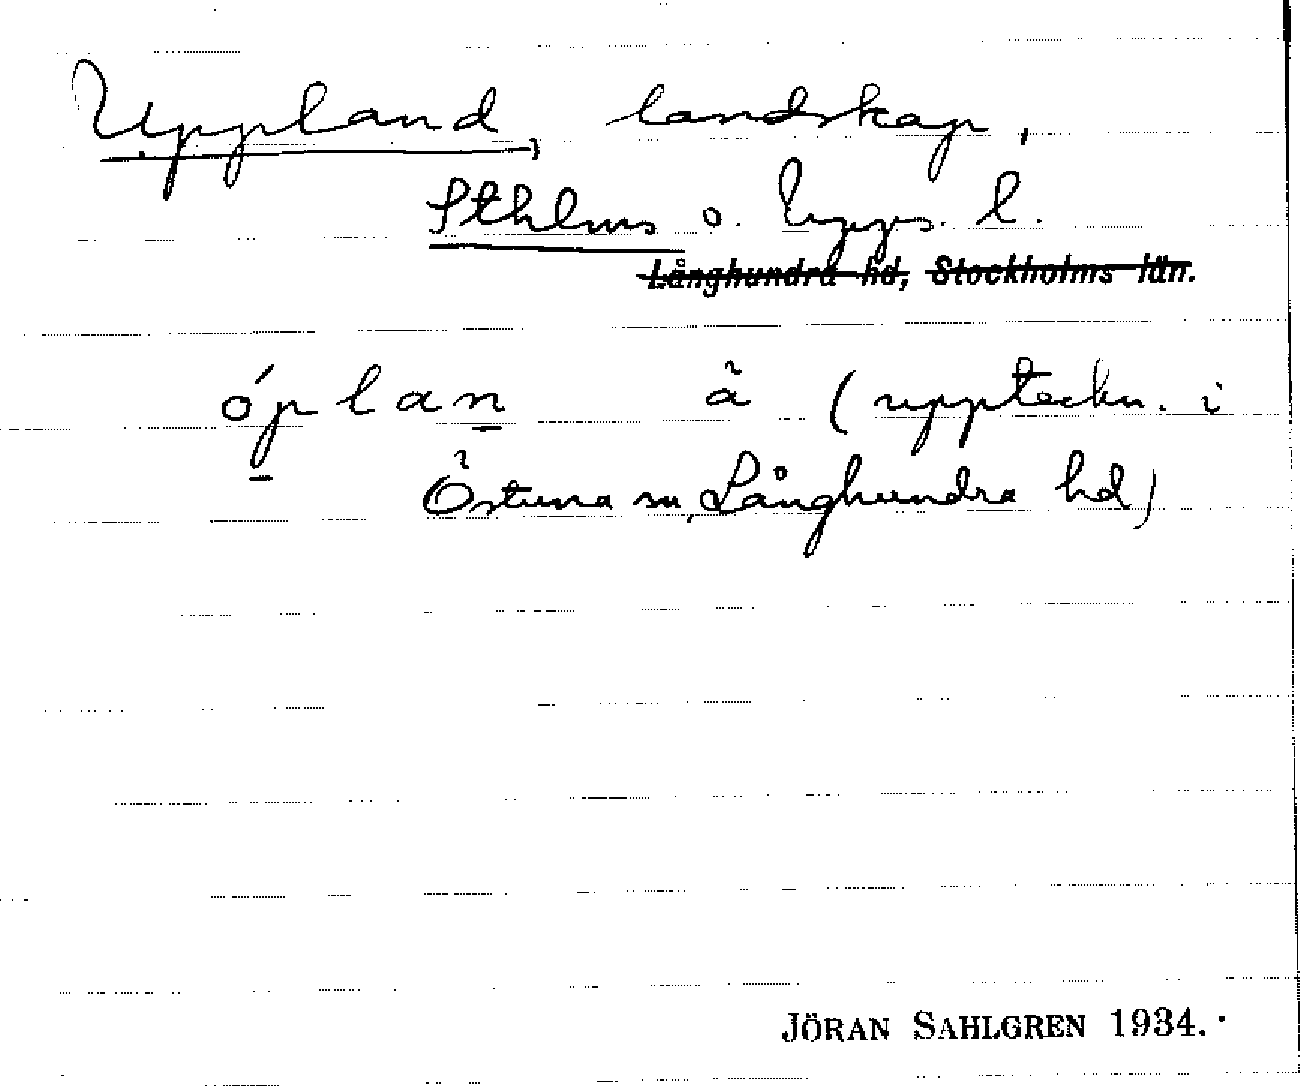 Uppland, landskap,
Sthlms o. Upps. l.
Långhundra hd, Stockholms län.
óplan å (uppteckn. i
Östuna sn, Långhundra hd)
JÖRAN SAHLGREN 1934.